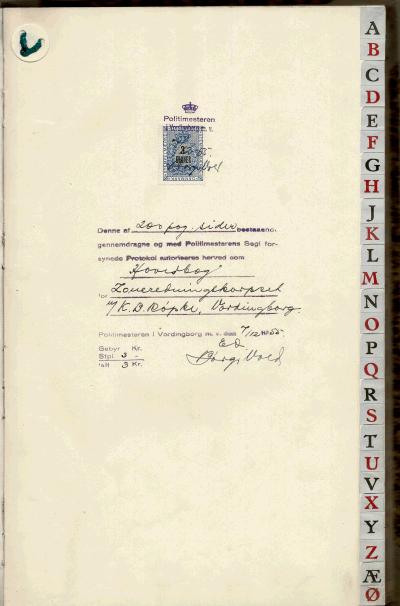 Politimesteren
i Vordingborg m. v.
2
Denne af 200 pag. sider bestaaende,
gennemdragne og med Politimesterens Segl for-
synede Protokol autoriseres herved som
Hovedbog
for Zoneredningskorpset
v/ K. B. Röpke, Vordingborg.
Politimesteren i Vordingborg m. v. den 7/12 1955.
Gebyr Kr.
Stpl. 3 -
Ialt 3 Kr.
A
B
C
D
E
F
G
H
J
K
L
M
N
O
P
Q
R
S
T
U
V
X
Y
Z
Æ
Ø